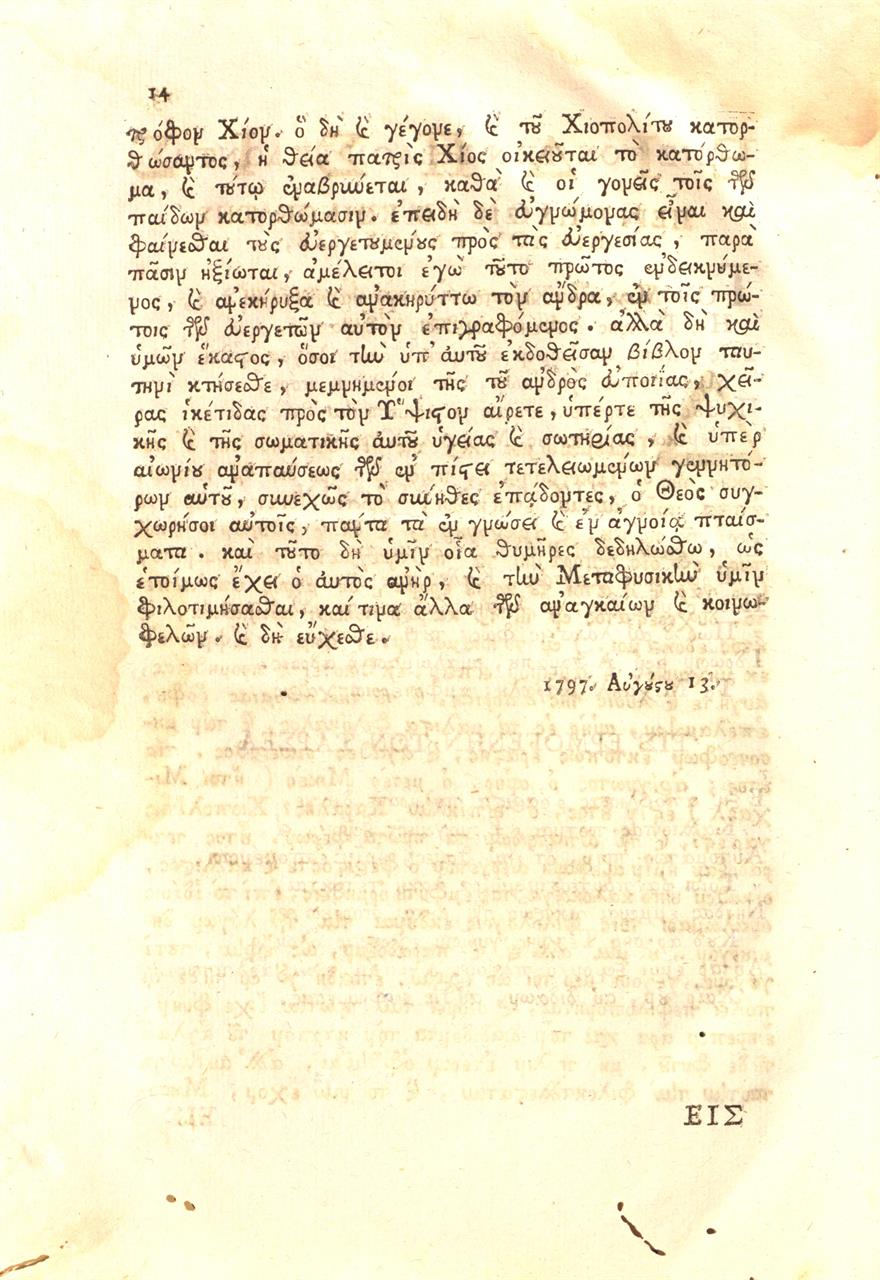 14
τρόφον Χίον. ὃ δὴ ϗ γέγονε, ϗ τοῦ Χιοπολίτου κατορ-
θώσαντος, ἡ θεία πατρὶς Χίος οἰκειοῦται τὸ κατόρθω-
μα, ϗ τούτῳ ἐναβρύνεται, καθὰ ϗ οἱ γονεῖς τοῖς τῶν
παίδων κατορθώμασιν. ἐπειδὴ δὲ εὐγνώμονας εἶναι καὶ
φαίνεσθαι τοὺς εὐεργετουμένους πρὸς τὰς εὐεργεσίας, παρὰ
πᾶσιν ἠξίωται, ἀμέλειτοι ἐγὼ τοῦτο πρῶτος ἐνδεικνύμε-
νος, ϗ ἀνεκήρυξα ϗ ἀνακηρύττω τὸν ἄνδρα, ἐν τοῖς πρώ-
τοις τῶν εὐεργετῶν αὐτὸν ἐπιγραφόμενος. ἀλλὰ δὴ καὶ
ὑμῶν ἕκαστος, ὅσοι τὴν ὑπ' αὐτοῦ ἐκδοθεῖσαν βίβλον ταυ-
τηνὶ κτήσεσθε, μεμνημένοι τῆς τοῦ ἀνδρὸς εὐποιΐας, χεῖ-
ρας ἱκέτιδας πρὸς τὸν Ὕψιστον αἴρετε, ὑπέρτε τῆς ψυχι-
κῆς ϗ τῆς σωματικῆς αὐτοῦ ὑγείας ϗ σωτηρίας, ϗ ὑπὲρ
αἰωνίου ἀναπαύσεως τῶν ἐν πίστει τετελειωμένων γεννητό-
ρων αὐτοῦ, συνεχῶς τὸ σύνηθες ἐπᾴδοντες, ὁ Θεὸς συγ-
χωρήσοι αὐτοῖς, πάντα τὰ ἐν γνώσει ϗ ἐν ἀγνοίᾳ πταίσ-
ματα. καὶ τοῦτο δὴ ὑμῖν οἷα θυμῆρες δεδηλώσθω, ὡς
ἑτοίμως ἔχει ὁ αὐτὸς ἀνὴρ, ϗ τὴν Μεταφυσικὴν ὑμῖν
φιλοτιμήσασθαι, καί τινα ἄλλα τῶν ἀναγκαίων ϗ κοινω-
φελῶν. ϗ δὴ εὔχεσθε.
1797. Αὐγούστου 13.
ΕΙΣ